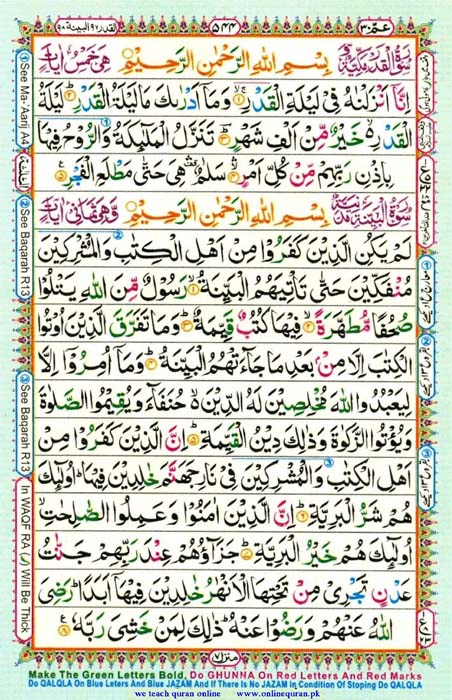 القدر ٩٧ البينة ٩٨
٥٤٤
عمّ ٣٠
سُوْرَةُ الْقَدْرِ مَكِّيَّةٌ بِسْمِ اللهِ الرَّحْمٰنِ الرَّحِيْمِ هِيَ خَمْسُ اٰيَاتٍ
اِنَّاۤ اَنْزَلْنٰهُ فِيْ لَيْلَةِ الْقَدْرِ ۚ۝١ وَمَاۤ اَدْرٰىكَ مَا لَيْلَةُ الْقَدْرِ ؕ۝٢ لَيْلَةُ
الْقَدْرِ ۙ خَيْرٌ مِّنْ اَلْفِ شَهْرٍ ؕ۝٣ تَنَزَّلُ الْمَلٰٓئِكَةُ وَالرُّوْحُ فِيْهَا
بِاِذْنِ رَبِّهِمْ ۚ مِنْ كُلِّ اَمْرٍ ۛ۝٤ سَلٰمٌ ۛ هِيَ حَتّٰى مَطْلَعِ الْفَجْرِ ۝٥
سُوْرَةُ الْبَيِّنَةِ مَدَنِيَّةٌ بِسْمِ اللهِ الرَّحْمٰنِ الرَّحِيْمِ وَّهِيَ ثَمَانِيْ اٰيَاتٍ
لَمْ يَكُنِ الَّذِيْنَ كَفَرُوْا مِنْ اَهْلِ الْكِتٰبِ وَالْمُشْرِكِيْنَ
مُنْفَكِّيْنَ حَتّٰى تَاْتِيَهُمُ الْبَيِّنَةُ ۙ۝١ رَسُوْلٌ مِّنَ اللهِ يَتْلُوْا
صُحُفًا مُّطَهَّرَةً ۙ۝٢ فِيْهَا كُتُبٌ قَيِّمَةٌ ؕ۝٣ وَمَا تَفَرَّقَ الَّذِيْنَ اُوْتُوا
الْكِتٰبَ اِلَّا مِنْۢ بَعْدِ مَا جَآءَتْهُمُ الْبَيِّنَةُ ؕ۝٤ وَمَاۤ اُمِرُوْۤا اِلَّا
لِيَعْبُدُوا اللهَ مُخْلِصِيْنَ لَهُ الدِّيْنَ ۙ حُنَفَآءَ وَيُقِيْمُوا الصَّلٰوةَ
وَيُؤْتُوا الزَّكٰوةَ وَذٰلِكَ دِيْنُ الْقَيِّمَةِ ؕ۝٥ اِنَّ الَّذِيْنَ كَفَرُوْا مِنْ
اَهْلِ الْكِتٰبِ وَالْمُشْرِكِيْنَ فِيْ نَارِ جَهَنَّمَ خٰلِدِيْنَ فِيْهَا ؕ اُولٰٓئِكَ
هُمْ شَرُّ الْبَرِيَّةِ ؕ۝٦ اِنَّ الَّذِيْنَ اٰمَنُوْا وَعَمِلُوا الصّٰلِحٰتِ ۙ
اُولٰٓئِكَ هُمْ خَيْرُ الْبَرِيَّةِ ؕ۝٧ جَزَآؤُهُمْ عِنْدَ رَبِّهِمْ جَنّٰتُ
عَدْنٍ تَجْرِيْ مِنْ تَحْتِهَا الْاَنْهٰرُ خٰلِدِيْنَ فِيْهَاۤ اَبَدًا ؕ رَضِيَ
اللهُ عَنْهُمْ وَرَضُوْا عَنْهُ ؕ ذٰلِكَ لِمَنْ خَشِيَ رَبَّهٗ ۝٨
① See Ma-'Aarij A4
② See Baqarah R13
③ See Baqarah R13
In WAQF RA (ر) Will Be Thick
منزل ٧
Make The Green Letters Bold, Do GHUNNA On Red Letters And Red Marks
Do QALQLA On Blue Leters And Blue JAZAM And If There Is No JAZAM In Condition Of Stoping Do QALQLA
we teach quran online www.onlinequran.pk